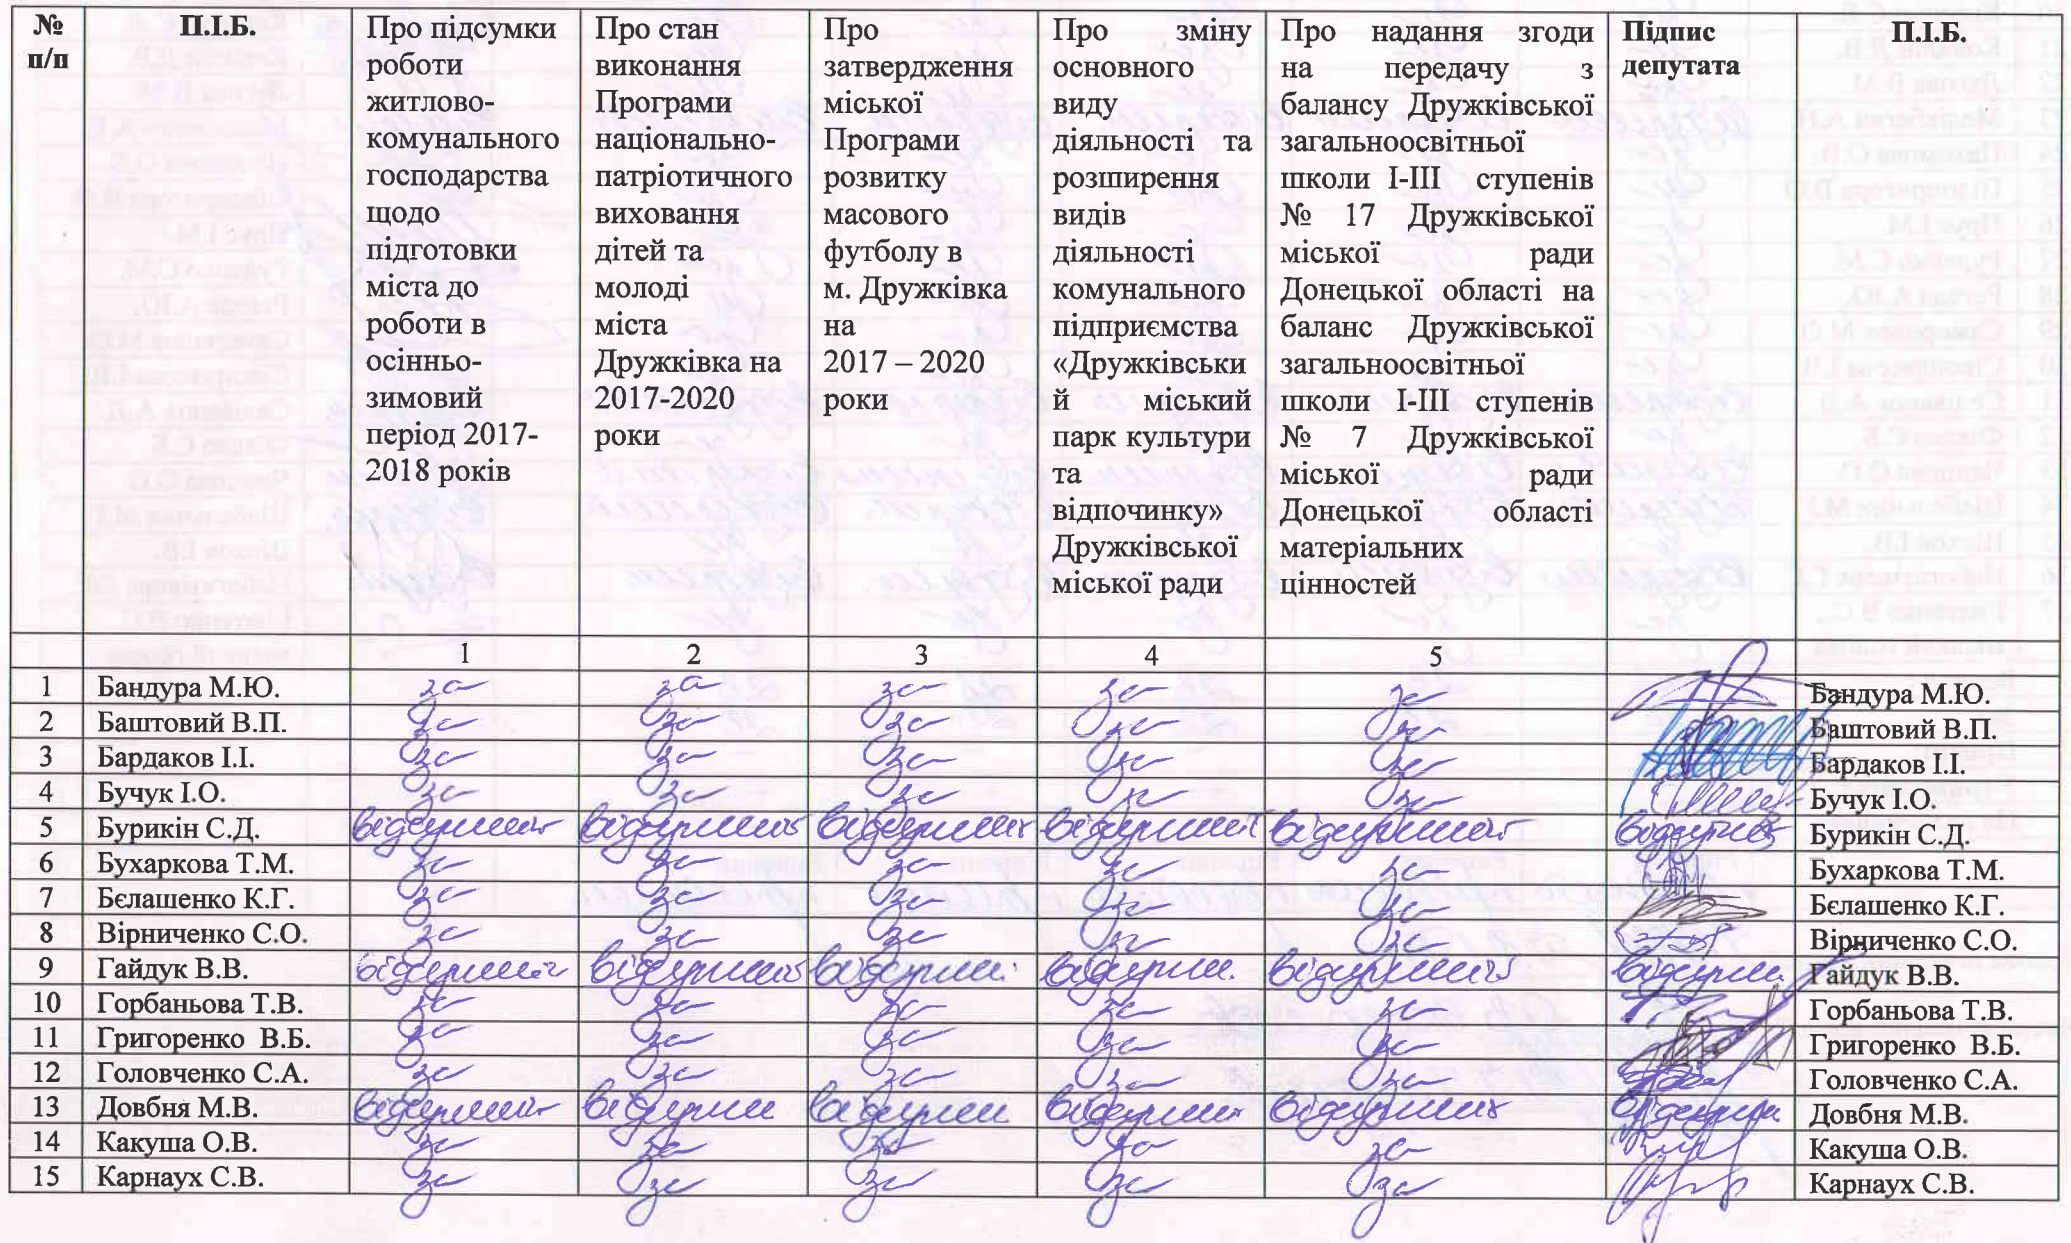 № п/п П.І.Б. Про підсумки роботи житлово-комунального господарства щодо підготовки міста до роботи в осінньо-зимовий період 2017-2018 років Про стан виконання Програми національно-патріотичного виховання дітей та молоді міста Дружківка на 2017-2020 роки Про затвердження міської Програми розвитку масового футболу в м. Дружківка на 2017 – 2020 роки Про зміну основного виду діяльності та розширення видів діяльності комунального підприємства «Дружківський міський парк культури та відпочинку» Дружківської міської ради Про надання згоди на передачу з балансу Дружківської загальноосвітньої школи І-ІІІ ступенів № 17 Дружківської міської ради Донецької області на баланс Дружківської загальноосвітньої школи І-ІІІ ступенів № 7 Дружківської міської ради Донецької області матеріальних цінностей Підпис депутата П.І.Б.
1 2 3 4 5
1 Бандура М.Ю. за за за за за Бандура М.Ю.
2 Баштовий В.П. за за за за за Баштовий В.П.
3 Бардаков І.І. за за за за за Бардаков І.І.
4 Бучук І.О. за за за за за Бучук І.О.
5 Бурикін С.Д. відсутній відсутній відсутній відсутній відсутній відсутній Бурикін С.Д.
6 Бухаркова Т.М. за за за за за Бухаркова Т.М.
7 Бєлашенко К.Г. за за за за за Бєлашенко К.Г.
8 Вірниченко С.О. за за за за за Вірниченко С.О.
9 Гайдук В.В. відсутній відсутній відсутн. відсутн. відсутній відсутн. Гайдук В.В.
10 Горбаньова Т.В. за за за за за Горбаньова Т.В.
11 Григоренко В.Б. за за за за за Григоренко В.Б.
12 Головченко С.А. за за за за за Головченко С.А.
13 Довбня М.В. відсутній відсутн відсутн відсутній відсутній Довбня М.В.
14 Какуша О.В. за за за за за Какуша О.В.
15 Карнаух С.В. за за за за за Карнаух С.В.